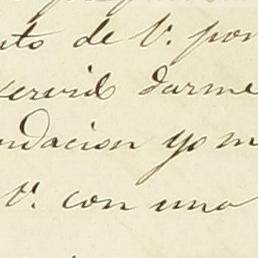 nto de V. por
servid darme
ndacion yo m
V. con una